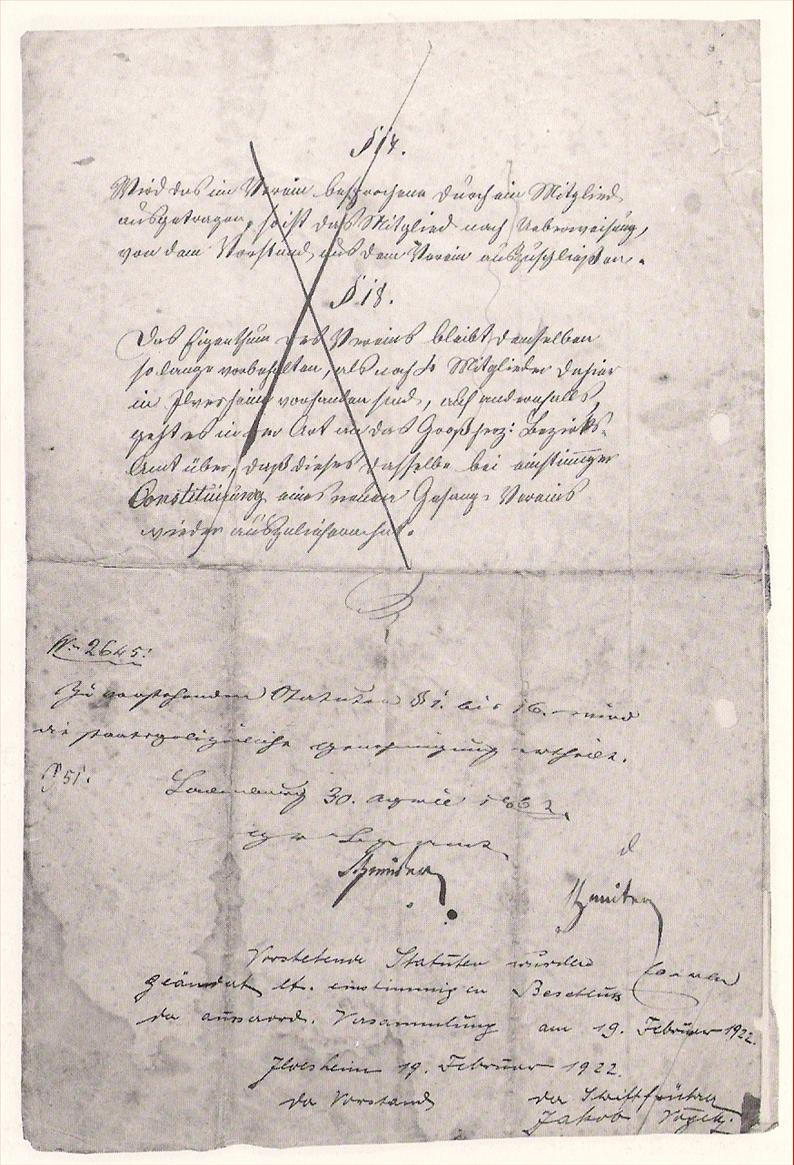 § 17.
Wird das im Verein besprochene durch ein Mitglied
ausgetragen, so ist das Mitglied nach Ueberweisung,
von dem Vorstand aus dem Verein auszuschließen.
§ 18.
Das Eigenthum des Vereins bleibt demselben
so lange vorbehalten, als noch Mitglieder dahier
in Ilvesheim vorhanden sind, andernfalls,
geht es in der Art an das Großherz: Bezirks-
Amt über, daß dieses dasselbe bei einstiger
Constituirung eines neuen Gesang-Vereins
wieder auszuliefern hat.
No 2645:
Zu vorstehenden Statuten § 1. bis 16. wird
die staatspolizeiliche Genehmigung ertheilt.
Ladenburg 30. April 1862.
Vorstehende Statuten wurden
geändert lt. einstimmigen Beschluss
der ausserord. Versammlung am 19. Februar 1922.
Ilvesheim 19. Februar 1922.
der Vorstand der Schriftführer
Jakob